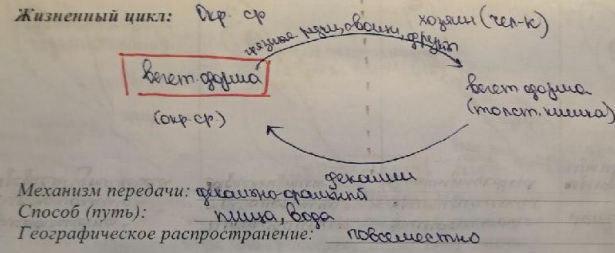 Жизненный цикл: Окр. ср хозяин (чел-к)
грязные руки, овощи, фрукты
вегет. форма
вегет форма
(толст. кишка)
(окр. ср.)
фекалии
Механизм передачи: фекально-оральный
Способ (путь): пища, вода
Географическое распространение: повсеместно